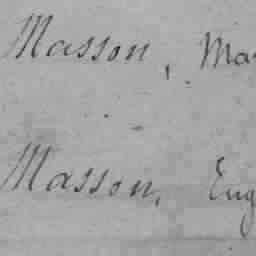 Masson, Ma
Masson, Eug